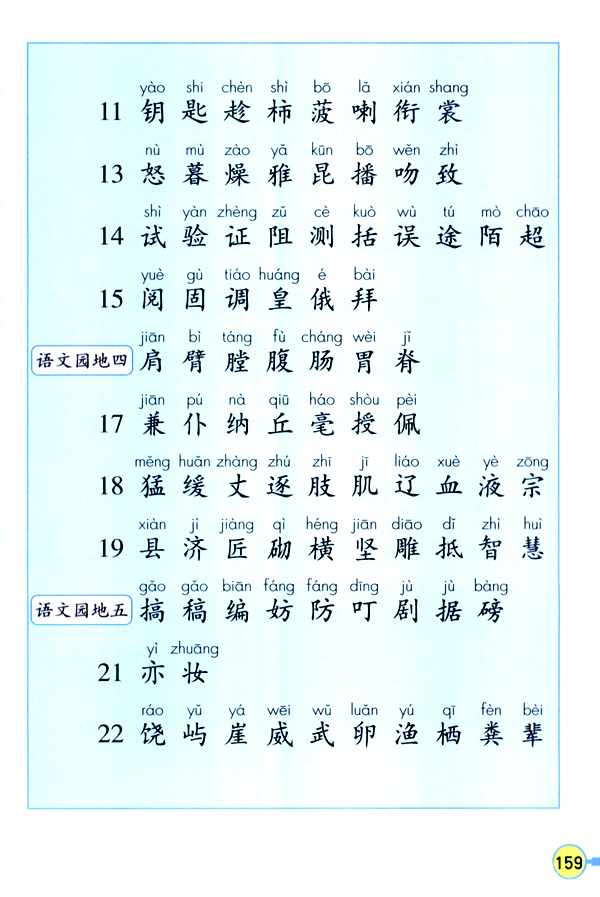 yào shi chèn shì bō lǎ xián shang
11 钥 匙 趁 柿 菠 喇 衔 裳
nù mù zào yǎ kūn bō wěn zhì
13 怒 暮 燥 雅 昆 播 吻 致
shì yàn zhèng zǔ cè kuò wù tú mò chāo
14 试 验 证 阻 测 括 误 途 陌 超
yuè gù tiáo huáng é bài
15 阅 固 调 皇 俄 拜
jiān bì táng fù cháng wèi jǐ
语文园地四 肩 臂 膛 腹 肠 胃 脊
jiān pú nà qiū háo shòu pèi
17 兼 仆 纳 丘 毫 授 佩
měng huǎn zhàng zhú zhī jī liáo xuè yè zōng
18 猛 缓 丈 逐 肢 肌 辽 血 液 宗
xiàn jì jiàng qì héng jiān diāo dǐ zhì huì
19 县 济 匠 砌 横 坚 雕 抵 智 慧
gǎo gǎo biān fáng fáng dīng jù jù bàng
语文园地五 搞 稿 编 妨 防 叮 剧 据 磅
yì zhuāng
21 亦 妆
ráo yǔ yá wēi wǔ luǎn yú qī fèn bèi
22 饶 屿 崖 威 武 卵 渔 栖 粪 辈
159